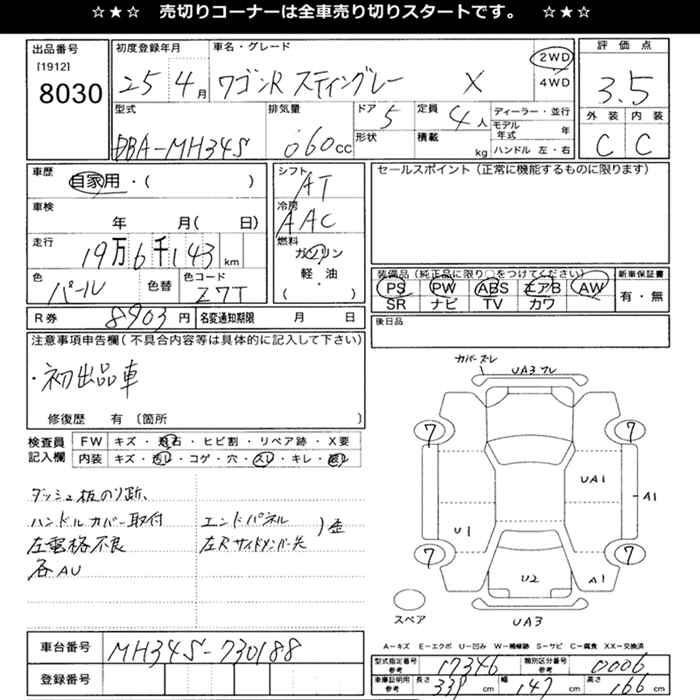 ☆★☆ 売切りコーナーは全車売り切りスタートです。 ☆★☆
出品番号 [1912] 8030
初度登録年月 25 4月
車名・グレード ワゴンR スティングレー X
2WD 4WD
評価点 3.5
外装 内装
C C
型式 DBA-MH34S
排気量 060cc
ドア 5 形状
定員 4人 積載 kg
ディーラー・並行
モデル年式 年
ハンドル 左・右
車歴 自家用・( )
車検 年 月( 日)
走行 19万6千143km
色 パール 色替 色コード Z7T
シフト AT
冷房 AAC
燃料 ガソリン
軽・油
( )
セールスポイント(正常に機能するものに限ります)
装備品(純正品に限り○をつけてください) 新車保証書
PS PW ABS エアB AW 有・無
SR ナビ TV カワ
R券 8903円 名変通知期限 月 日
後日品
注意事項申告欄(不具合内容等は具体的に記入して下さい)
・初出品車
修復歴 有 〔箇所
検査員記入欄
FW キズ・飛石・ヒビ割・リペア跡・X要
内装 キズ・汚レ・コゲ・穴・スレ・キレ・
ダッシュ板のり跡、
ハンドルカバー取付
左電格不良
各AU
エンドパネル
左Rサイドメンバー先 )歪
カバーズレ
UA3ワレ
7 7
UA1 A1
U1
7 7
U2 A1
スペア
UA3
A−キズ E−エクボ U−凹み W−補修跡 S−サビ C−腐食 XX−交換済
車台番号 MH34S-730188
登録番号
型式指定番号 参考 17346 類別区分番号 参考 0006
車庫証明用 参考 長さ 339cm 幅 147cm 高さ 166cm